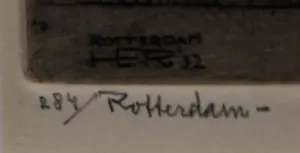 ROTTERDAM
HER '32
284/ Rotterdam -